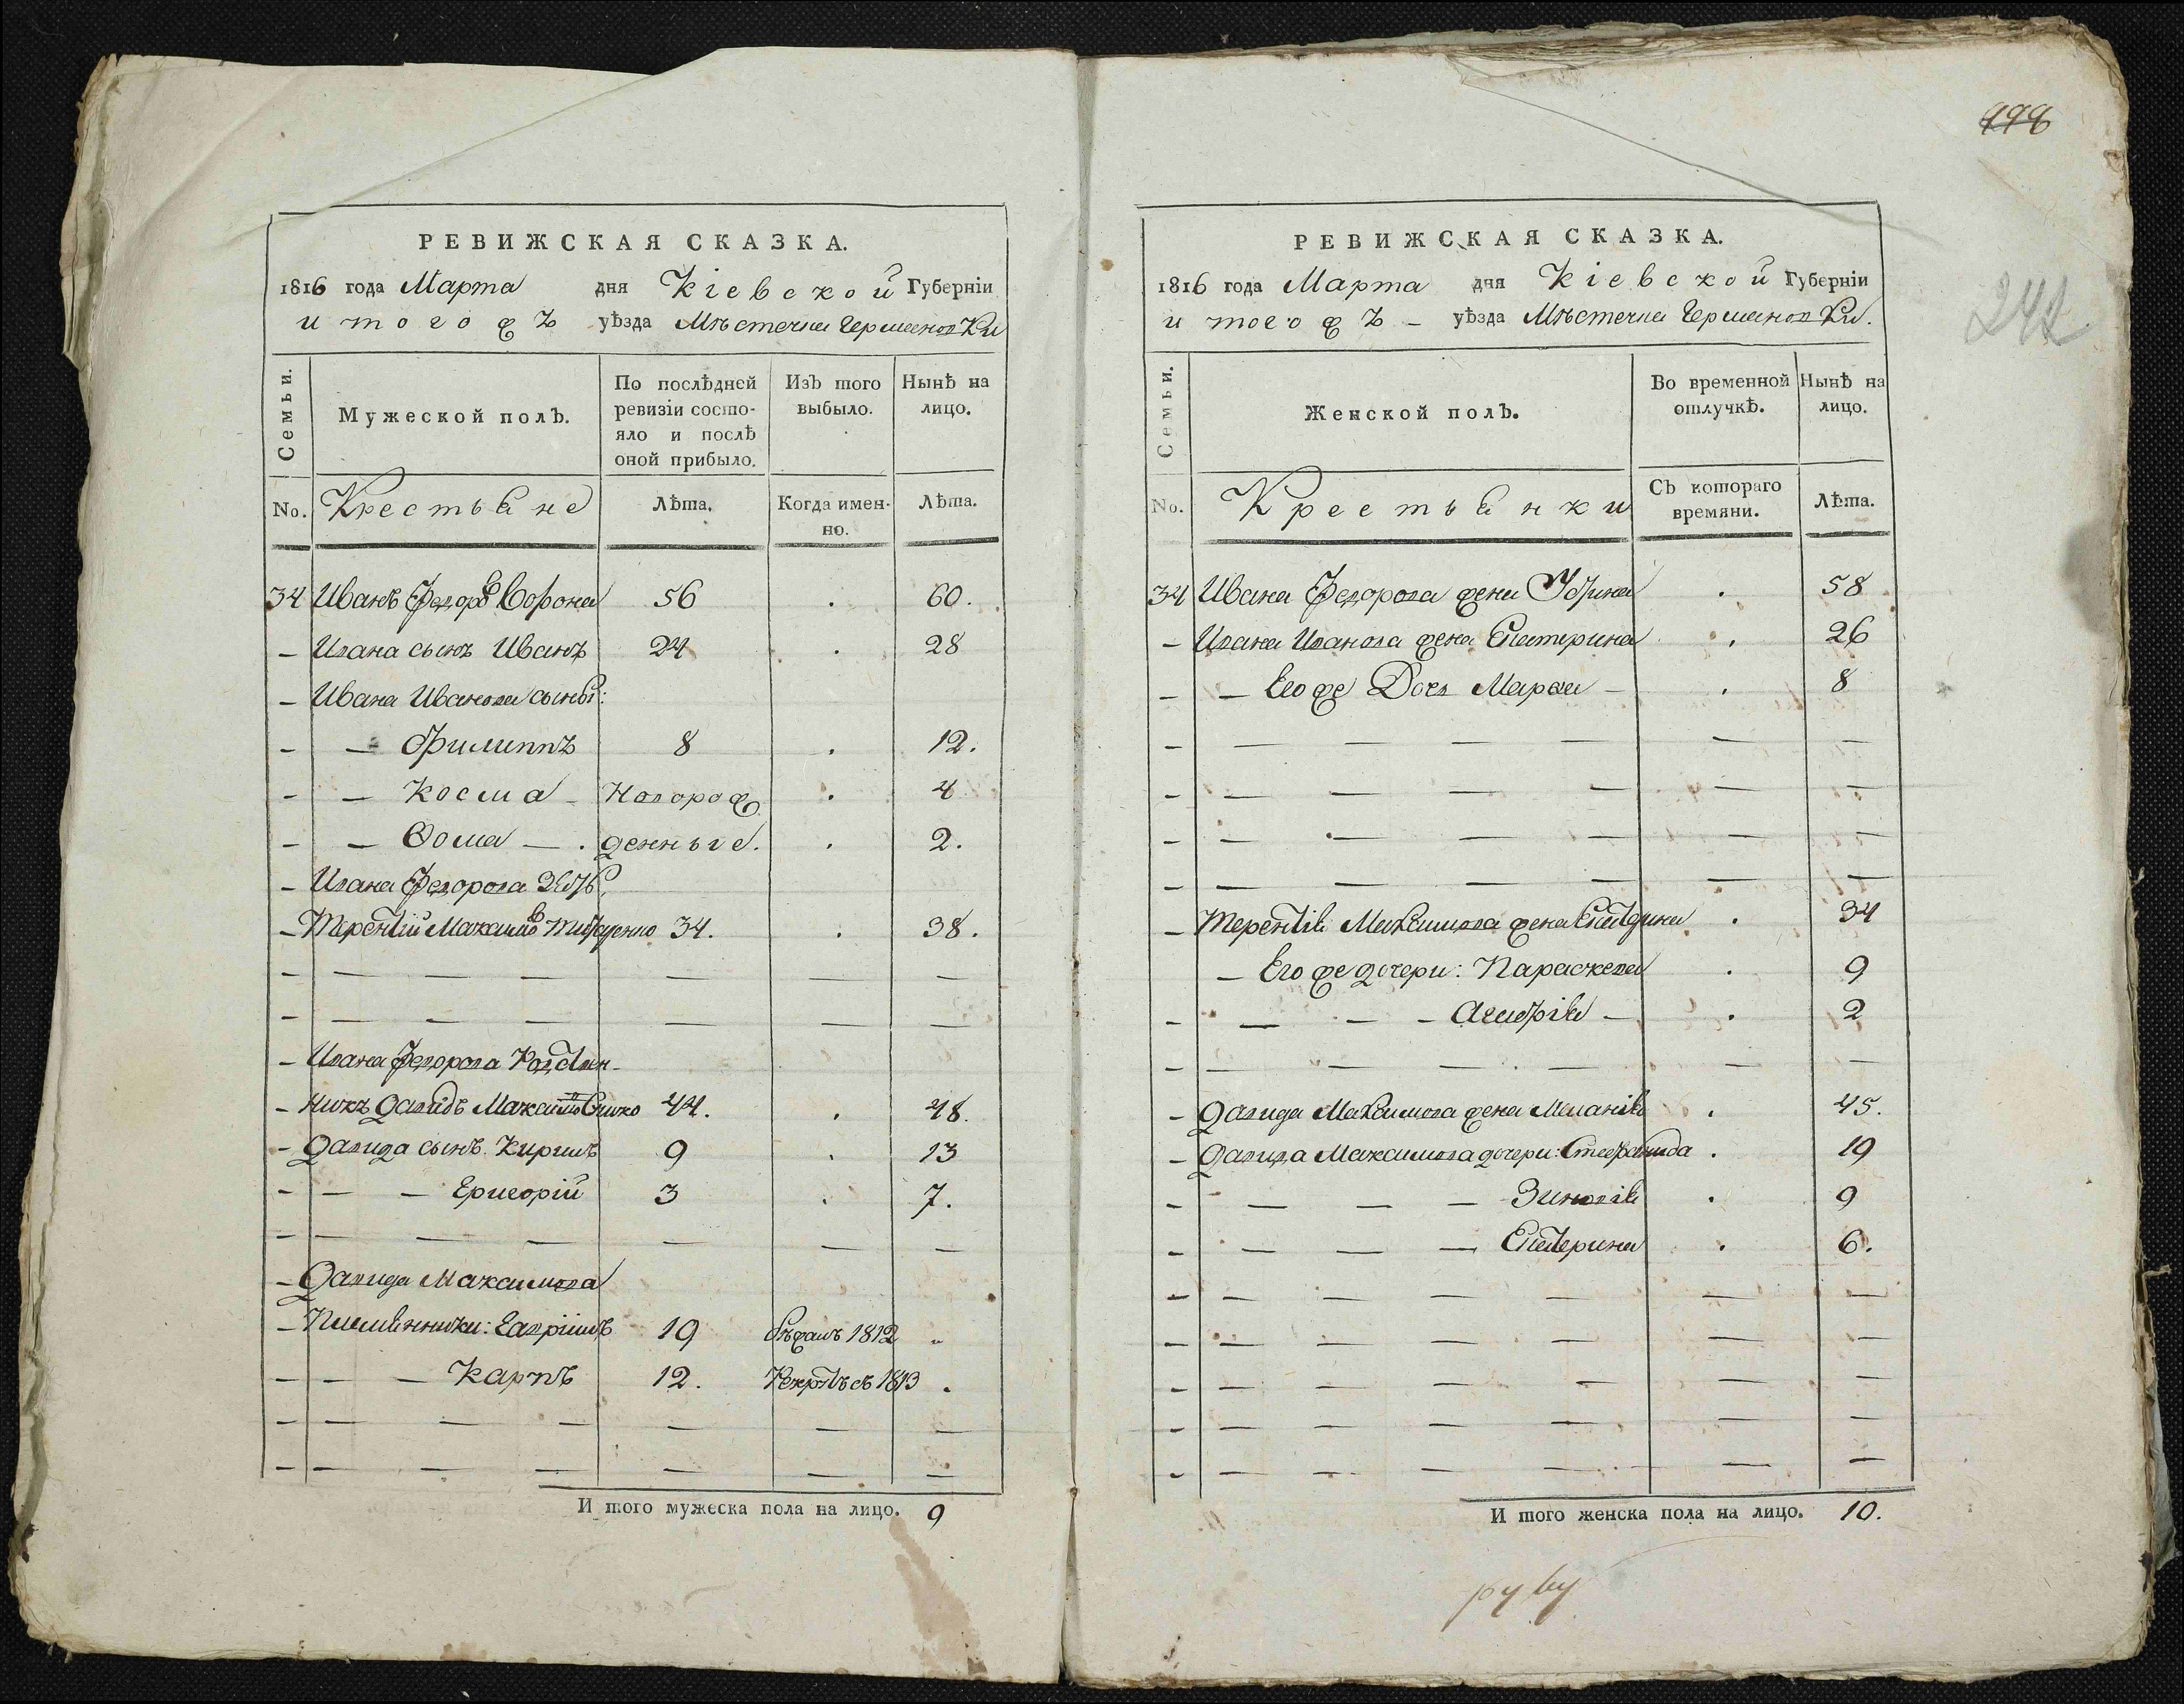 РЕВИЖСКАЯ СКАЗКА.
1816 года Марта дня Кіевской Губерніи
и тогожъ уѣзда Мѣстечка Германовки
Семьи.
Мужеской полъ.
По послѣдней ревизіи состо-
яло и послѣ оной прибыло.
Изъ того выбыло.
Нынѣ на лицо.
No.
Крестьяне
Лѣта.
Когда имен-
но.
Лѣта.
34 Иванъ Федоровъ Ворона 56 . 60.
– Ивана сынъ Иванъ 24 . 28
– Ивана Иванова сыны:
– – Филиппъ 8 . 12.
– – Косма – Новорож . 4
– – Ѳома – . денные. . 2.
– Ивана Федорова Зять
– Терентій Максимовъ 34. . 38.
– Ивана Федорова
– Давидъ Максимовъ 44. . 48.
– Давида сынъ Кирилъ 9 . 13
– – – Григорій 3 . 7.
– Давида Максимова
– Племянники: Гавріилъ 19 бѣжалъ 1812 „
– – – Карпъ 12. 1813 .
И того мужеска пола на лицо. 9
998
242
РЕВИЖСКАЯ СКАЗКА.
1816 года Марта дня Кіевской Губерніи
и тогожъ – уѣзда Мѣстечка Германовки.
Семьи.
Женской полъ.
Во временной отлучкѣ.
Нынѣ на лицо.
No.
Крестьянки
Съ котораго времяни.
Лѣта.
34 Ивана Федорова жена Ирина . 58
– Ивана Иванова жена Екатерина . 26
– – Его же Дочь Марѳа – . 8
– Терентія Максимова жена Екатерина . 34
– Его же дочери: Параскева . 9
– – – – Агафія – . 2
– Давида Максимова жена Меланія . 45.
– Давида Максимова дочери: Стефанида . 19
– – – – Зиновія . 9
– – – – Екатерина . 6.
И того женска пола на лицо. 10.